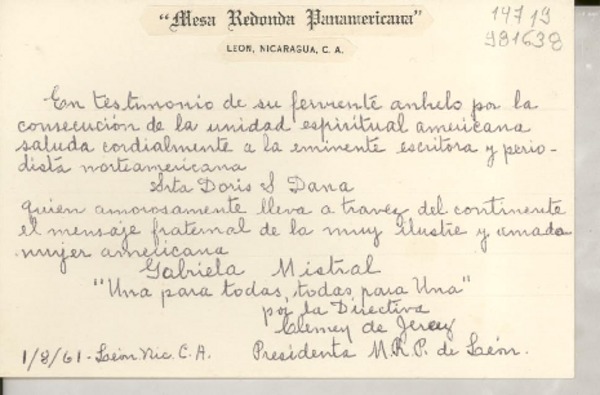 "Mesa Redonda Panamericana"
LEON, NICARAGUA, C. A.
14719
981638
En testimonio de su ferviente anhelo por la
consecución de la unidad espiritual americana
saluda cordialmente a la eminente escritora y perio-
dista norteamericana
Srta Doris S Dana
quien amorosamente lleva a travez del continente
el mensaje fraternal de la muy ilustre y amada
mujer americana
Gabriela Mistral
"Una para todas, todas para Una"
por la Directiva
Clemey de Jerez
1/8/61 - León Nic. C. A. Presidenta M.R.P. de León.